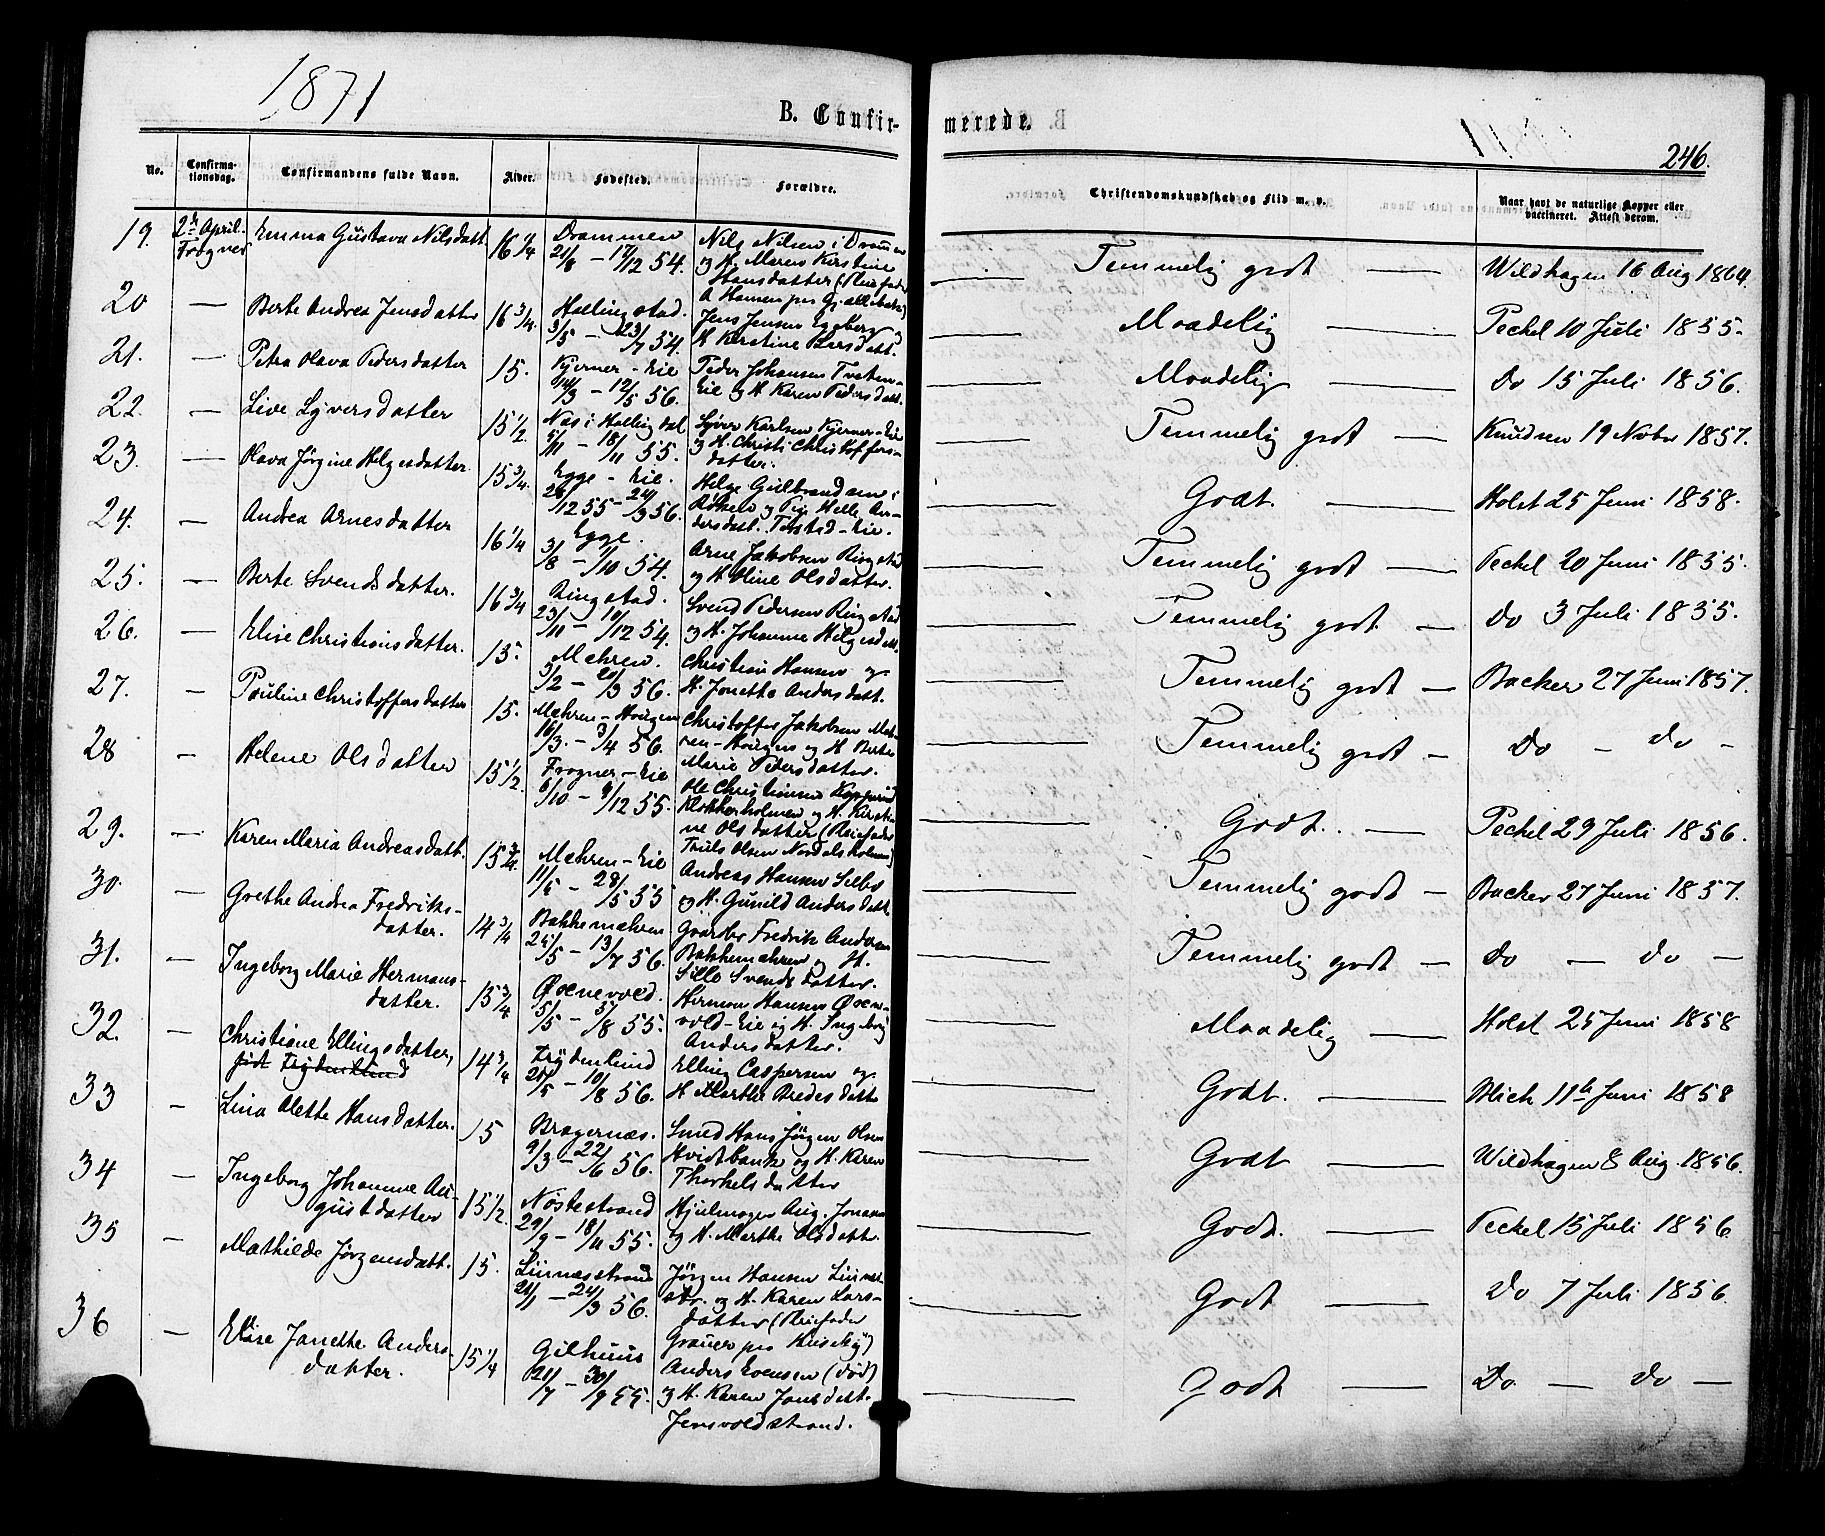 1871
B. Confir-
merede.
246.
No.
Confirma-
tionsdag.
Confirmandens fulde Navn.
Alder.
Fødested.
Forældre.
Christendomskundskab og Flid m. v.
Naar havt de naturlige Kopper eller
vaccineret. Attest derom.
19. 2den April Emma Gustava Nilsdatt. 16 1/4 Drammen Nils Nilsen i Drammen
Frogner 21/8 – 17/12 54. og H. Maren Kirstine
Hansdatter (Pleiefader
A Hansen paa Gjellebæk)
Temmelig godt — Wildhagen 16 Aug 1864.
20 — Berte Andrea Jensdatter 16 3/4. Hallingstad. Jens Jensen Eggberg og
3/5 – 23/7 54. H. Kirstine Larsdatt.
Maadelig — Peckel 10 Juli 1855.
21. — Petra Olava Pedersdatter 15. Kjerner-Eie Peder Johansen Tveten-
14/3 – 12/5 56. Eie og H. Karen Pedersdatt.
Maadelig — Do 15 Juli 1856.
22. — Live Syversdatter 15 1/2 Næs i Hallingdal Syver Karlsen Kjerner-Eie
5/11 – 18/11 55. og H. Christi Christoffers-
datter.
Temmelig godt — Knudsen 19 Novbr 1857.
23. — Olava Jørgine Helgesdatter. 15 3/4. Egge-Eie. Helge Gulbrandsen i
28/12 55 – 24/3 56. Røken og Pig. Helle An-
dersdatt. Tufsted-Eie.
Godt. — Holst 25 Juni 1858.
24. — Andrea Arnesdatter 16 1/4 Egge. Arne Jakobsen Ringstad
3/8 – 1/10 54. og H. Oline Olsdatter.
Temmelig godt — Peckel 20 Juni 1855.
25. — Berte Svendsdatter. 16 3/4 Ringstad. Svend Pedersen Ringstad
23/10 – 10/12 54. og H. Johanne Helgesdatt.
Temmelig godt — Do 3 Juli 1855.
26. — Elise Christiansdatter. 15. Mehren. Christian Hansen og
3/2 – 20/3 56. H. Jonette Andersdatt.
Temmelig godt — Backer 27 Juni 1857.
27. — Pauline Christoffersdatter 15. Mehren-Hougen Christoffer Jakobsen Meh-
16/3 – 3/4 56. ren-Hougen og H. Berte
Marie Pedersdatter.
Temmelig godt — Do – Do –
28 — Helene Olsdatter 15 1/2. Frogner-Eie Ole Christiansen Kopperud
6/10 – 9/12 55. Klokkerholmen og H. Kirsti-
ne Olsdatter (Pleiefader
Truls Olsen Nordalsholmen)
Godt. — Peckel 29 Juli 1856.
29. — Karen Maria Andreasdatt. 15 3/4 Mehren-Eie Andreas Hansen Selbo
11/5 – 28/5 55 og H. Gunild Andersdatt.
Temmelig godt — Backer 27 Juni 1857.
30. — Grethe Andrea Fredriks-
datter. 14 3/4 Bakkemehren Gaardbr Fredrik Andersen
25/5 – 13/7 56. Bakkemehren og H.
Sille Svendsdatter.
Temmelig godt — Do — Do —
31. — Ingeborg Marie Hermans-
datter. 15 3/4 Øxnevold. Herman Hansen Øxne-
5/5 – 5/8 55. vold-Eie og H. Ingeborg
Andersdatter.
Maadelig — Holst 25 Juni 1858
32. — Christiane Ellingsdatter,
født Frydenlund 14 3/4 Frydenlund Elling Caspersen og
25/5 – 10/8 56. H Marthe Bredesdatt
Godt. — Blich 11te Juni 1858
33 — Lina Olette Hansdatter. 15 Bragernæs. Smed Hans Jørgen Olsen
9/3 – 22/6 56. Hvidtbank og H. Karen
Thorkelsdatter
Godt — Wildhagen 8 Aug. 1856.
34 — Ingeborg Johanne Au-
gustdatter 15 1/2. Nøstestrand Hjulmager Aug. Jonasen
29/9 – 18/11 55. og H. Marthe Olsdatt.
Godt. — Peckel 15 Juli 1856
35 — Mathilde Jørgensdatt. 15. Linnæsstrand Jørgen Hansen Linnæs-
21/1 – 24/3 56. str. og H. Karen Lars-
datter (Pleiefader
Grauer paa Huseby)
Godt — Do 7 Juli 1856.
36 — Elise Janette Anders-
datter. 15 1/4 Gilhuus Anders Evensen (død)
21/7 – 30/9 55. og H. Karen Jonsdatt.
Jensvoldstrand.
Godt — Do — Do —